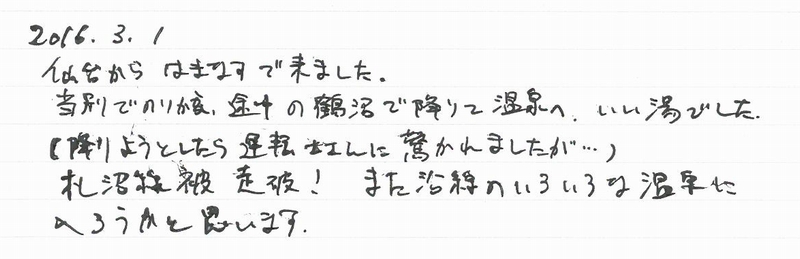 2016. 3. 1
仙台から はまなすで来ました。
当別でのりかえ、途中の鶴沼で降りて温泉へ。いい湯でした。
(降りようとしたら運転士さんに驚かれましたが…)
札沼線 被 走破! また沿線のいろいろな温泉に
入ろうかと思います。